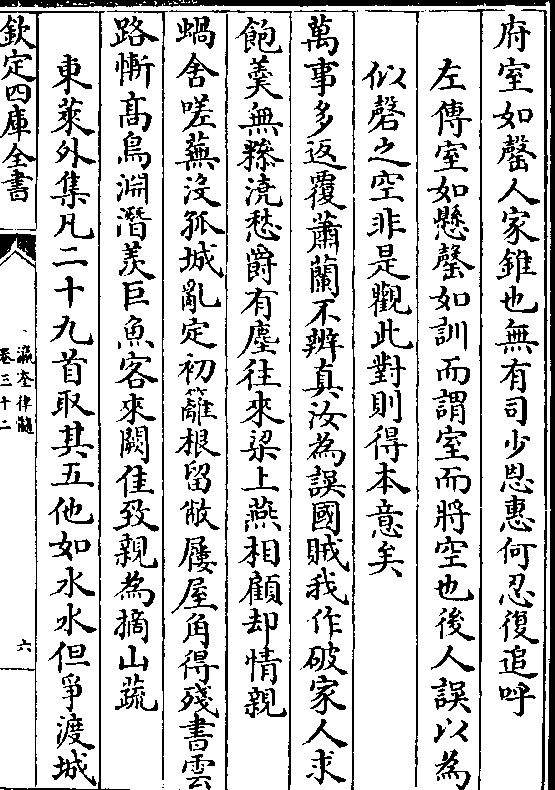 府室如罄人家錐也無有司少恩惠何忍復追呼
左傳室如懸罄如訓而謂室而將空也後人誤以為
似磬之空非是觀此對則得本意矣
萬事多返覆蕭蘭不辨真汝為誤國賊我作破家人求
飽羮無糝澆愁爵有塵往來梁上燕相顧却情親
蝸舍嗟蕪沒孤城亂定初籬根留敝屨屋角得殘書雲
路慚高鳥淵潛羨巨魚客來闕佳致親為摘山蔬
東萊外集凡二十九首取其五他如水水但爭渡城
欽定四庫全書
瀛奎律髓
卷三十二
六